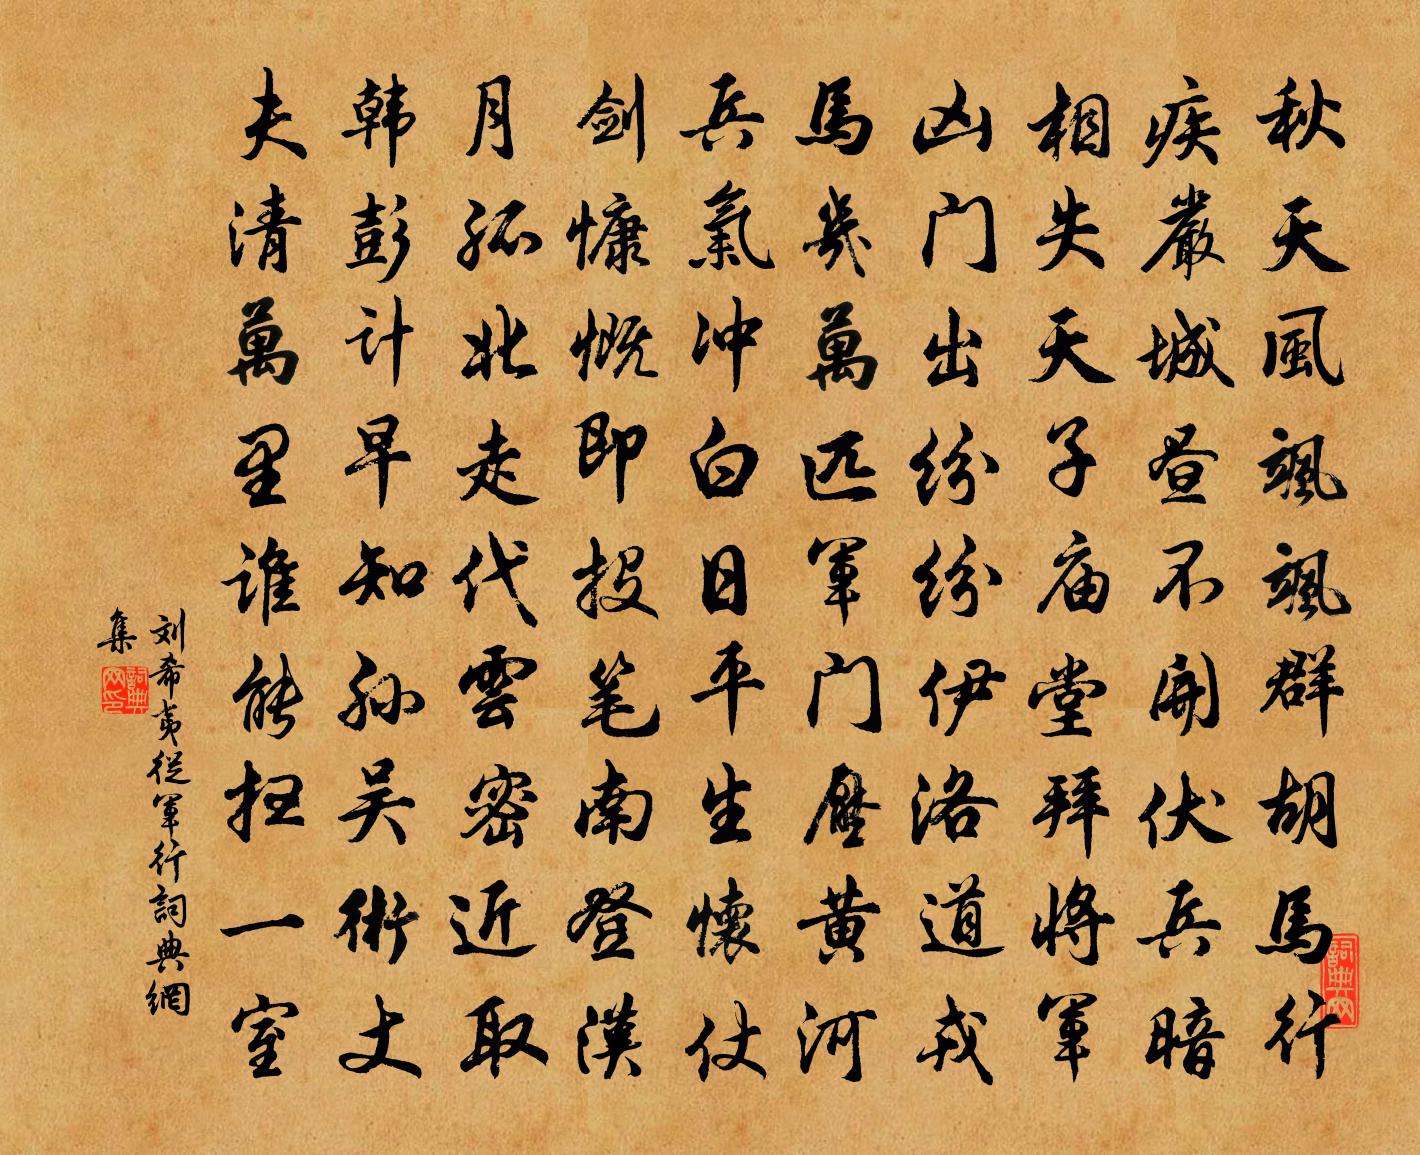 秋天風颯颯群胡馬行
疾嚴城昼不開伏兵暗
相失天子庙堂拜將軍
凶门出纷纷伊洛道戎
馬幾萬匹軍门壓黄河
兵氣冲白日平生懷仗
剑慷慨即投笔南登漢
月孤北走代雲密近取
韩彭计早知孙吴術丈
夫清萬里谁能扫一室
刘希夷從軍行詞典網
集
詞典网
詞典网印